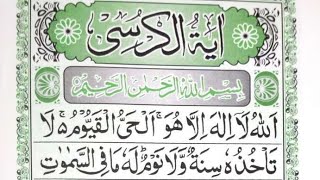 اٰیَةُ الْکُرْسِی
بِسْمِ اللّٰهِ الرَّحْمٰنِ الرَّحِیْمِ
اَللّٰهُ لَاۤ اِلٰهَ اِلَّا هُوَ ۚ اَلْحَیُّ الْقَیُّوْمُ ۵ لَا
تَاْخُذُهٗ سِنَةٌ وَّلَا نَوْمٌ ؕ لَهٗ مَا فِی السَّمٰوٰتِ